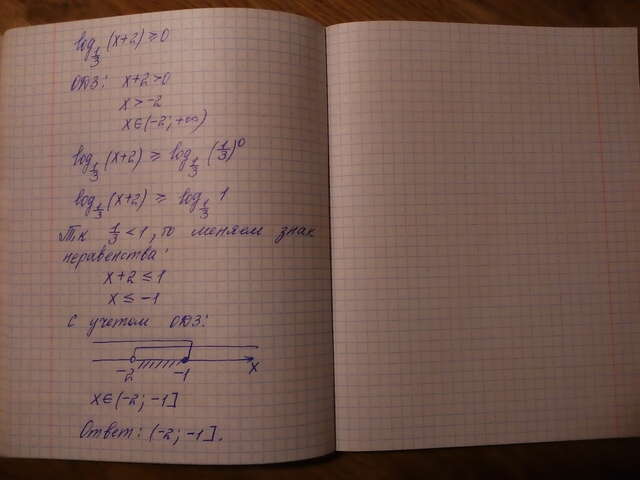 log_{1/3}(x+2) ≥ 0
ОДЗ: x+2>0
x>-2
x∈(-2; +∞)
log_{1/3}(x+2) ≥ log_{1/3}(1/3)^0
log_{1/3}(x+2) ≥ log_{1/3} 1
Т.к 1/3 < 1, то меняем знак
неравенства:
x+2 ≤ 1
x ≤ -1
С учетом ОДЗ:
-2 -1 x
x∈(-2; -1]
Ответ: (-2; -1].